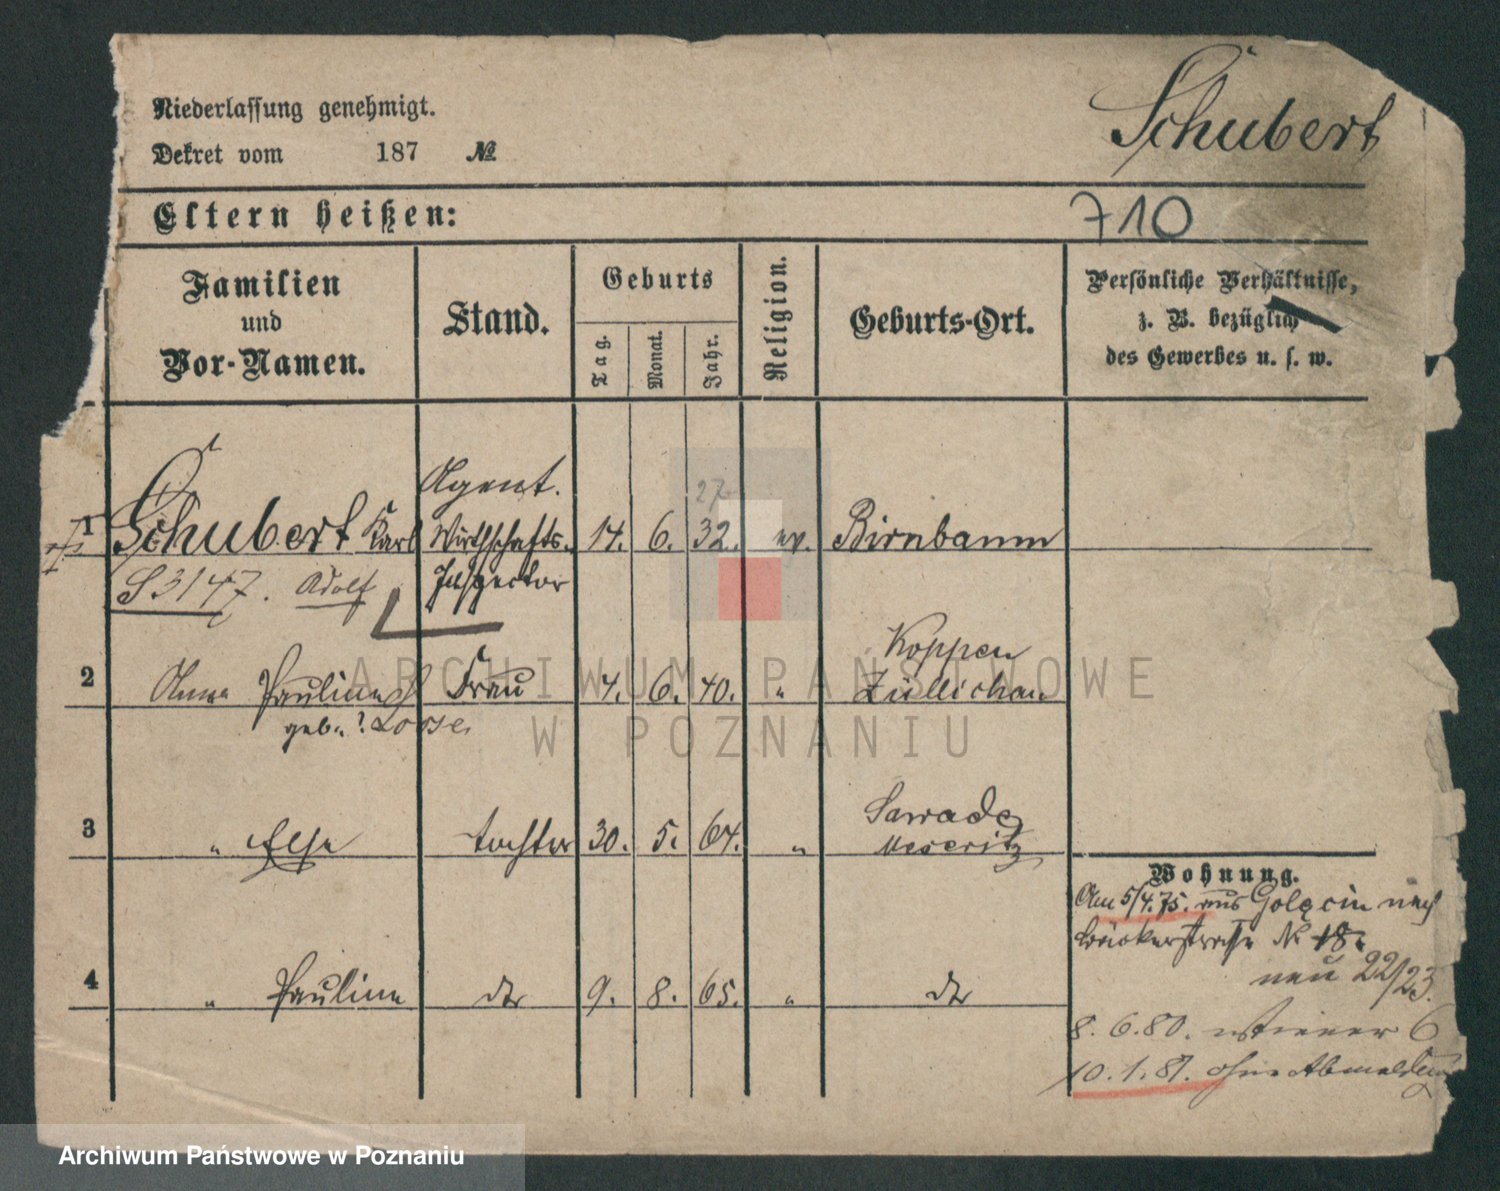 Schubert
Niederlassung genehmigt.
Dekret vom 187 №
Eltern heißen:
710
Familien
und
Vor-Namen.
Stand.
Geburts
Tag.
Monat.
Jahr.
Religion.
Geburts-Ort.
Persönliche Verhältnisse,
z. B. bezüglich
des Gewerbes u. s. w.
Agent. 27
1 Schubert Karl Wirthschafts- 14. 6. 32. ev. Birnbaum
S 3147. Adolf Inspector
Koppen
2 Anna Pauline Frau 4. 6. 40. " Züllichau
geb. ? Loose
Sawade
3 " Else tochter 30. 5. 64. " Meseritz
Wohnung.
Am 5/4.75. aus Golęcin nach
Bäckerstraße № 18.
4 " Pauline dto 9. 8. 65. " dto
neu 22/23.
8. 6. 80. 6
10. 1. 81. ohne Abmeldung
ARCHIWUM PAŃSTWOWE
W POZNANIU
Archiwum Państwowe w Poznaniu